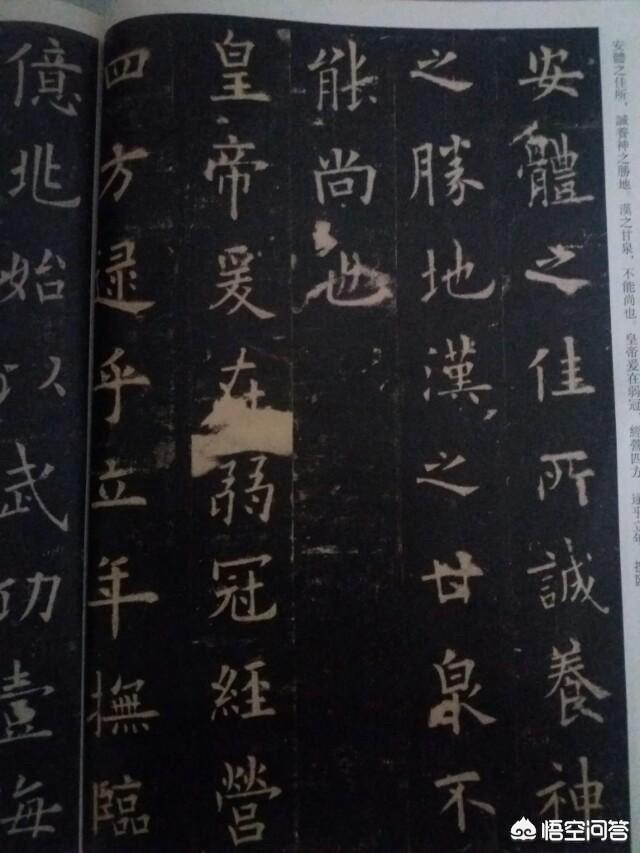 安體之佳所，誠養神之勝地。漢之甘泉，不能尚也 皇帝爰在弱冠 經營四方 逮乎立年 撫臨
安體之佳所誠養神
之勝地漢之甘泉不
能尚也
皇帝爰在弱冠經營
四方逮乎立年撫臨
億兆始以武功壹海
悟空问答